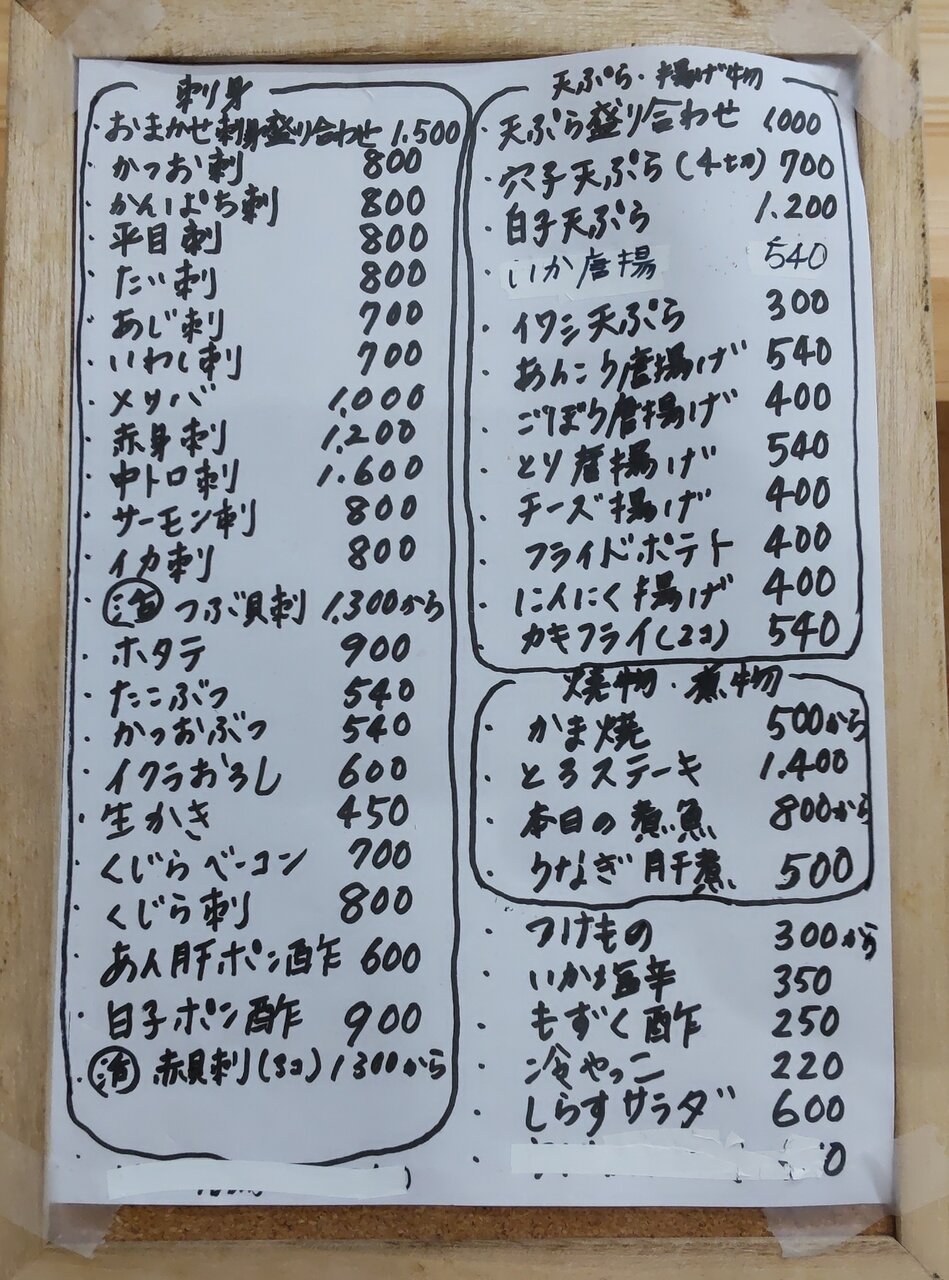 刺身
・おまかせ刺身盛り合わせ 1.500
・かつお刺 800
・かんぱち刺 800
・平目刺 800
・たい刺 800
・あじ刺 700
・いわし刺 700
・〆サバ 1.000
・赤身刺 1.200
・中トロ刺 1.600
・サーモン刺 800
・イカ刺 800
・活 つぶ貝刺 1.300から
・ホタテ 900
・たこぶつ 540
・かつおぶつ 540
・イクラおろし 600
・生かき 450
・くじらベーコン 700
・くじら刺 800
・あん肝ポン酢 600
・白子ポン酢 900
・活 赤貝刺(3コ) 1300から
天ぷら・揚げ物
・天ぷら盛り合わせ 1000
・穴子天ぷら(4切) 700
・白子天ぷら 1.200
・いか唐揚 540
・イワシ天ぷら 300
・あんこう唐揚げ 540
・ごぼう唐揚げ 400
・とり唐揚げ 540
・チーズ揚げ 400
・フライドポテト 400
・にんにく揚げ 400
・カキフライ(2コ) 540
焼物・煮物
・かま焼 500から
・とろステーキ 1.400
・本日の煮魚 800から
・うなぎ肝煮 500
・つけもの 300から
・いか塩辛 350
・もずく酢 250
・冷やっこ 220
・しらすサラダ 600